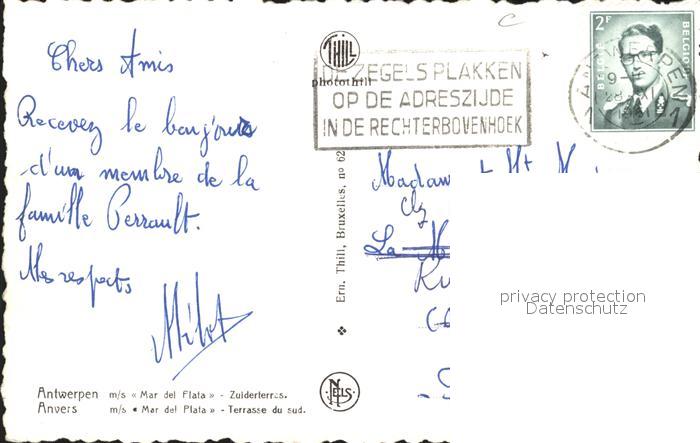 Chers Amis
Recevez le bonjour
d'un membre de la
famille Perrault.
Mes respects
THILL
photothill
DE ZEGELS PLAKKEN
OP DE ADRESZIJDE
IN DE RECHTERBOVENHOEK
2F
BELGIE
BELGIQUE
ANTWERPEN
1 1
Ern. Thill, Bruxelles, no 62
Madam
La M
privacy protection
Datenschutz
NELS
Antwerpen m/s « Mar del Plata » - Zuiderterras.
Anvers m/s « Mar del Plata » - Terrasse du sud.